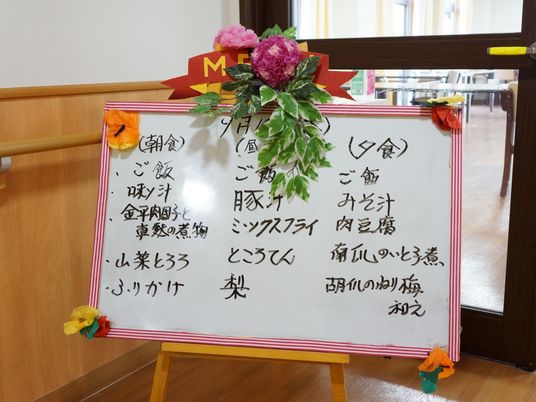 9月
(朝食)
・ご飯
・味ソ汁
・金平肉団子と
の煮物
・山菜とろろ
・ふりかけ
(昼
ご飯
豚汁
ミックスフライ
ところてん
梨
(夕食)
ご飯
みそ汁
肉豆腐
南瓜のいとこ煮
胡瓜のねり梅
和え